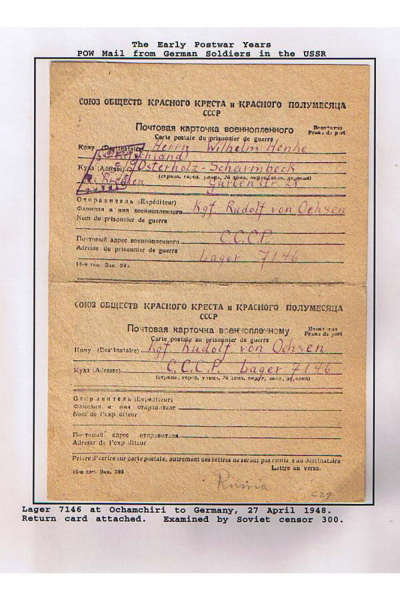 The Early Postwar Years
POW Mail from German Soldiers in the USSR
СОЮЗ ОБЩЕСТВ КРАСНОГО КРЕСТА и КРАСНОГО ПОЛУМЕСЯЦА
СССР
Почтовая карточка военнопленного
Carte postale du prisonnier de guerre
Бесплатно
Franc de port
Кому (Destinataire) Herrn Wilhelm Henke
Куда (Adresse) Osterholz-Scharmbeck
(страна, город, улица, № дома,
b. Bremen Gartenstr.
Отправитель (Expéditeur)
Фамилия и имя военнопленного Kgf. Rudolf von Oehsen
Nom du prisonnier de guerre
Почтовый адрес военнопленного С.С.С.Р.
Adresse du prisonnier de guerre
Lager 7146
СОЮЗ ОБЩЕСТВ КРАСНОГО КРЕСТА и КРАСНОГО ПОЛУМЕСЯЦА
СССР
Почтовая карточка военнопленному
Carte postale au prisonnier de guerre
Бесплатно
Franc de port
Кому (Destinataire) Kgf. Rudolf von Oehsen
Куда (Adresse) С.С.С.Р. Lager 7146
(страна, город, улица, № дома, округ, село, деревня)
Отправитель (Expéditeur)
Фамилия и имя отправителя
Nom de l'expéditeur
Почтовый адрес отправителя
Adresse de l'expéditeur
Prière d'écrire sur carte postale, autrement ces lettres ne seront pas remises au destinataire
Lettre au verso.
Russia
Lager 7146 at Ochamchiri to Germany, 27 April 1948.
Return card attached. Examined by Soviet censor 300.